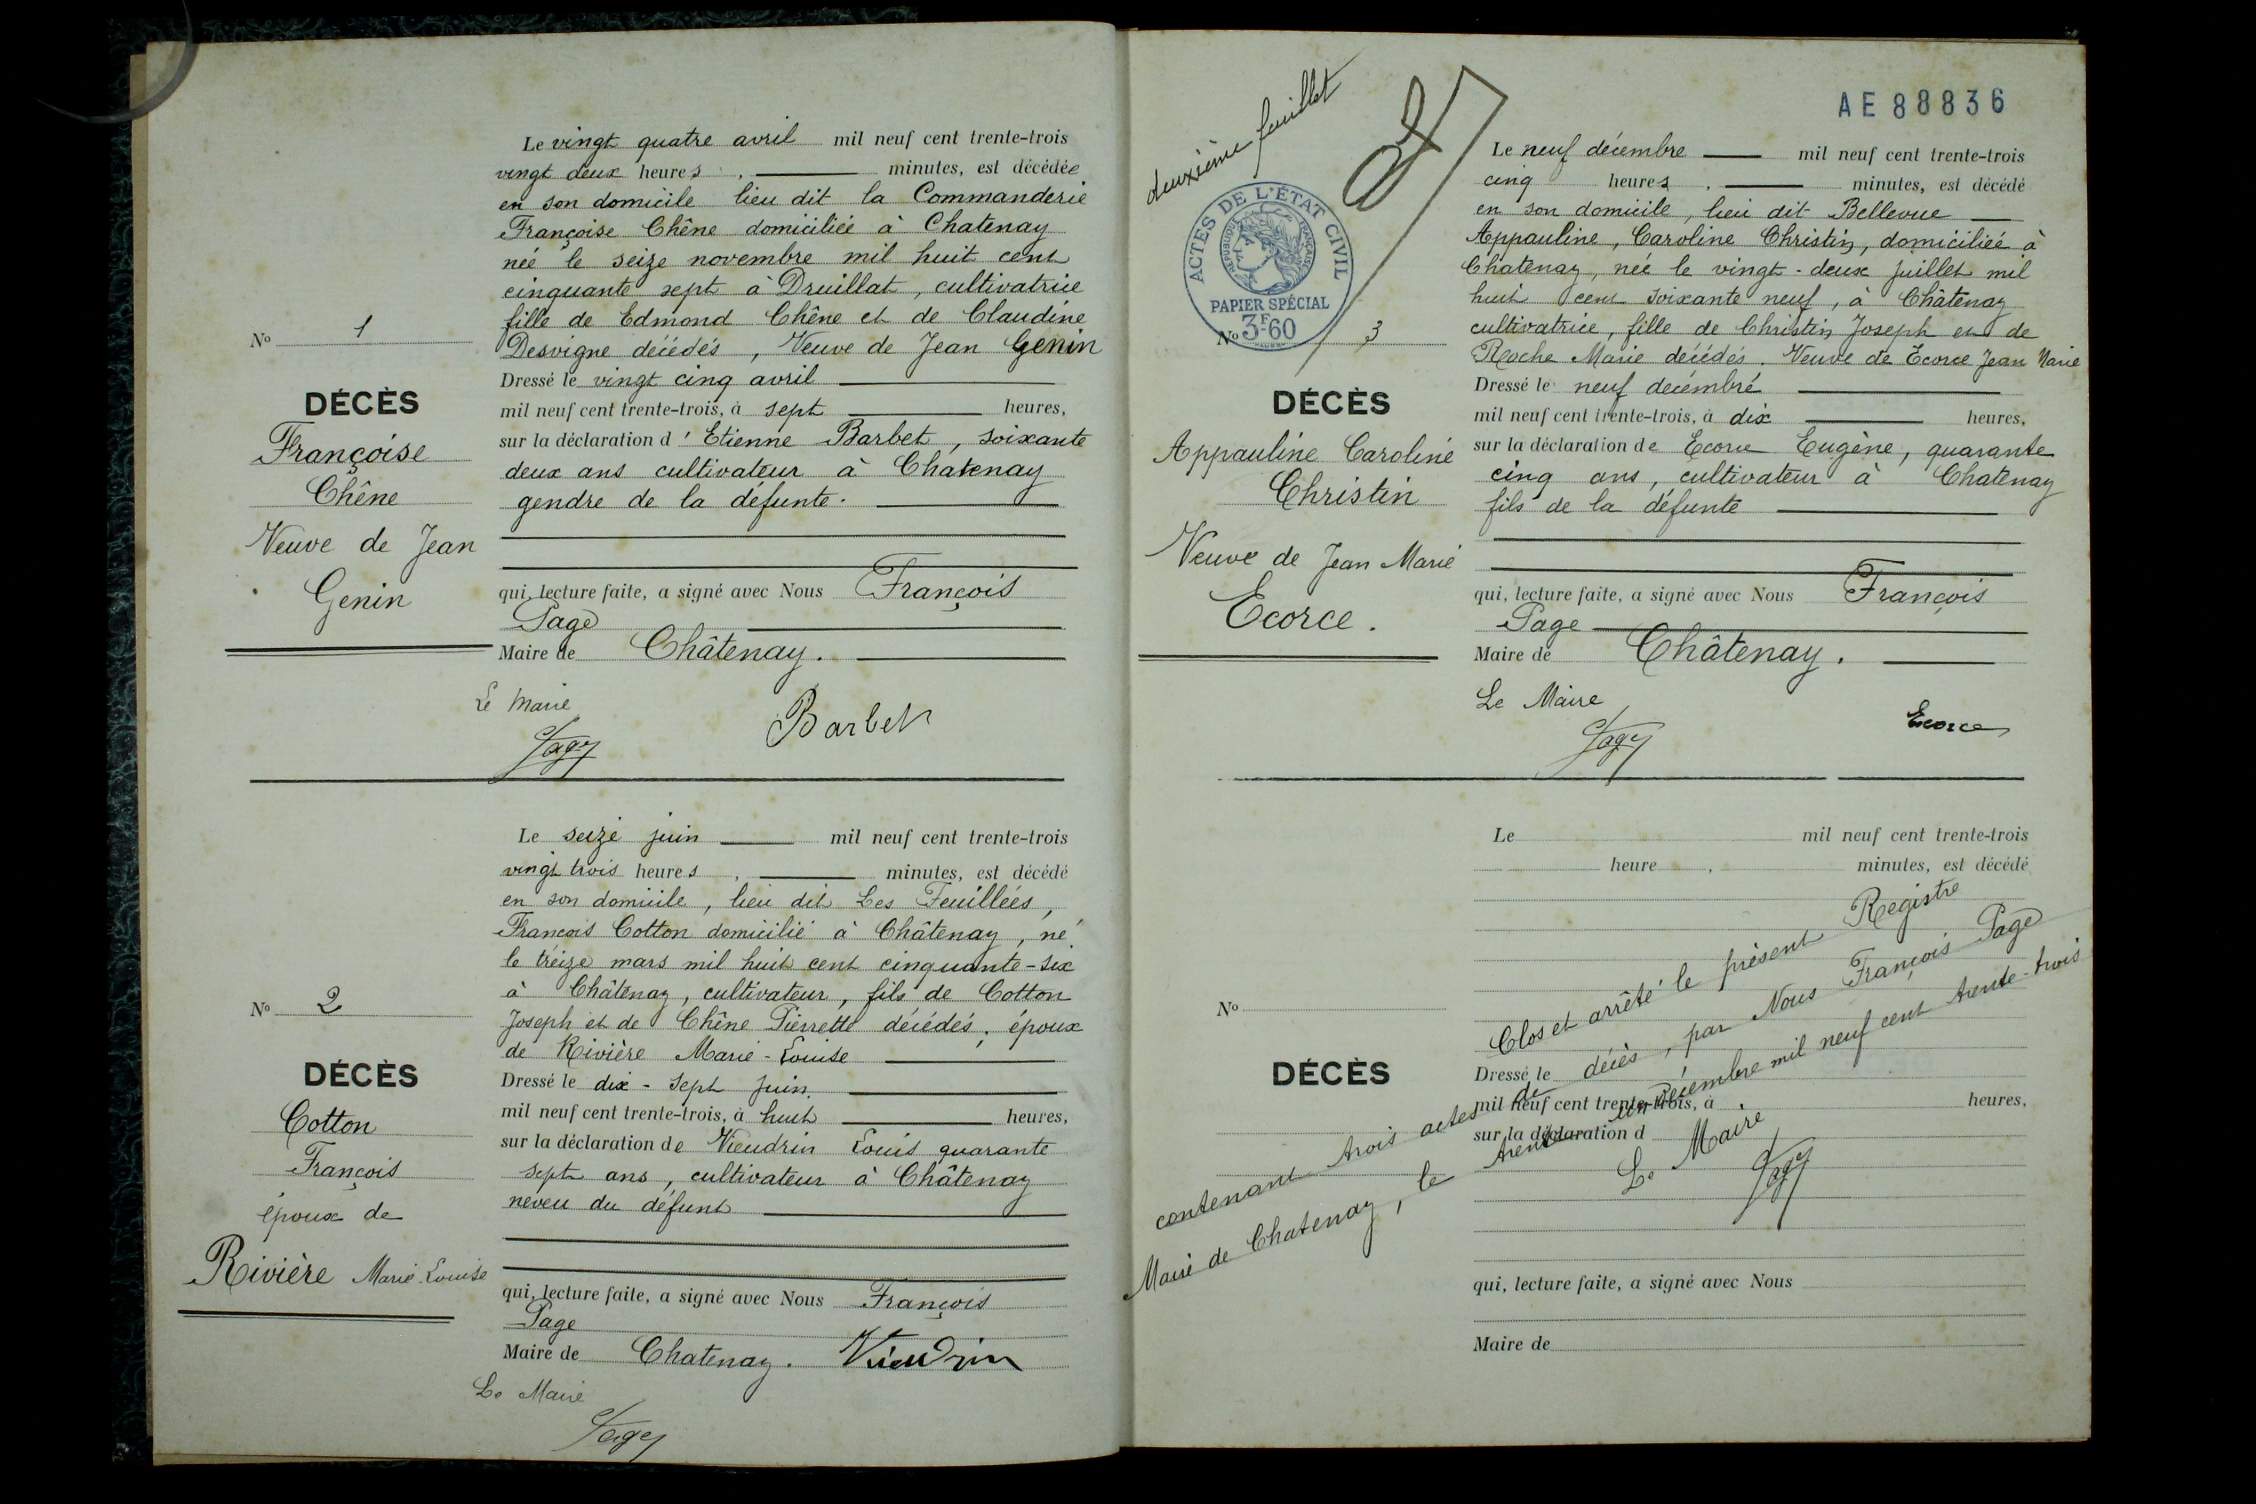 Le vingt quatre avril mil neuf cent trente-trois
vingt deux heures, minutes, est décédée
en son domicile lieu dit la Commanderie
Françoise Chêne domiciliée à Chatenay
née le seize novembre mil huit cent
cinquante sept à Druillat, cultivatrice
fille de Edmond Chêne et de Claudine
Desvigne décédés, Veuve de Jean Genin
Dressé le vingt cinq avril
mil neuf cent trente-trois, à sept heures,
sur la déclaration d'Etienne Barbet, soixante
deux ans cultivateur à Chatenay
gendre de la défunte.
qui, lecture faite, a signé avec Nous François
Page
Maire de Châtenay.
Le Maire
Page
Barbet
No 1
DÉCÈS
Françoise
Chêne
Veuve de Jean
Genin
Le seize juin mil neuf cent trente-trois
vingt trois heures, minutes, est décédé
en son domicile, lieu dit Les Feuillées,
François Cotton domicilié à Châtenay, né
le treize mars mil huit cent cinquante-six
à Châtenay, cultivateur, fils de Cotton
Joseph et de Chêne Pierrette décédés, époux
de Rivière Marie-Louise
Dressé le dix-sept juin.
mil neuf cent trente-trois, à huit heures,
sur la déclaration de Vieudrin Louis quarante
sept ans, cultivateur à Châtenay
neveu du défunt
qui, lecture faite, a signé avec Nous François
Page
Maire de Chatenay. Vieudrin
Le Maire
Page
No 2
DÉCÈS
Cotton
François
époux de
Rivière Marie-Louise
deuxième feuillet
AE 88836
ACTES DE L'ÉTAT CIVIL
RÉPUBLIQUE FRANÇAISE
PAPIER SPÉCIAL
3F-60
Le neuf décembre mil neuf cent trente-trois
cinq heures, minutes, est décédé
en son domicile, lieu dit Bellevue
Appauline, Caroline Christin, domiciliée à
Chatenay, née le vingt-deux juillet mil
huit cent soixante neuf, à Châtenay
cultivatrice, fille de Christin Joseph et de
Roche Marie décédés. Veuve de Ecorce Jean Marie
Dressé le neuf décembre
mil neuf cent trente-trois, à dix heures,
sur la déclaration de Ecorce Eugène, quarante
cinq ans, cultivateur à Chatenay
fils de la défunte
qui, lecture faite, a signé avec Nous François
Page
Maire de Châtenay.
Le Maire
Page
Ecorce
No 3
DÉCÈS
Appauline Caroline
Christin
Veuve de Jean Marie
Ecorce.
Le mil neuf cent trente-trois
heure, minutes, est décédé
No
DÉCÈS
Dressé le
mil neuf cent trente-trois, à heures,
sur la déclaration d
qui, lecture faite, a signé avec Nous
Maire de
Clos et arrêté le présent Registre
contenant trois actes de décès, par Nous François Page
Maire de Chatenay, le trente un Décembre mil neuf cent trente-trois
Le Maire
Page